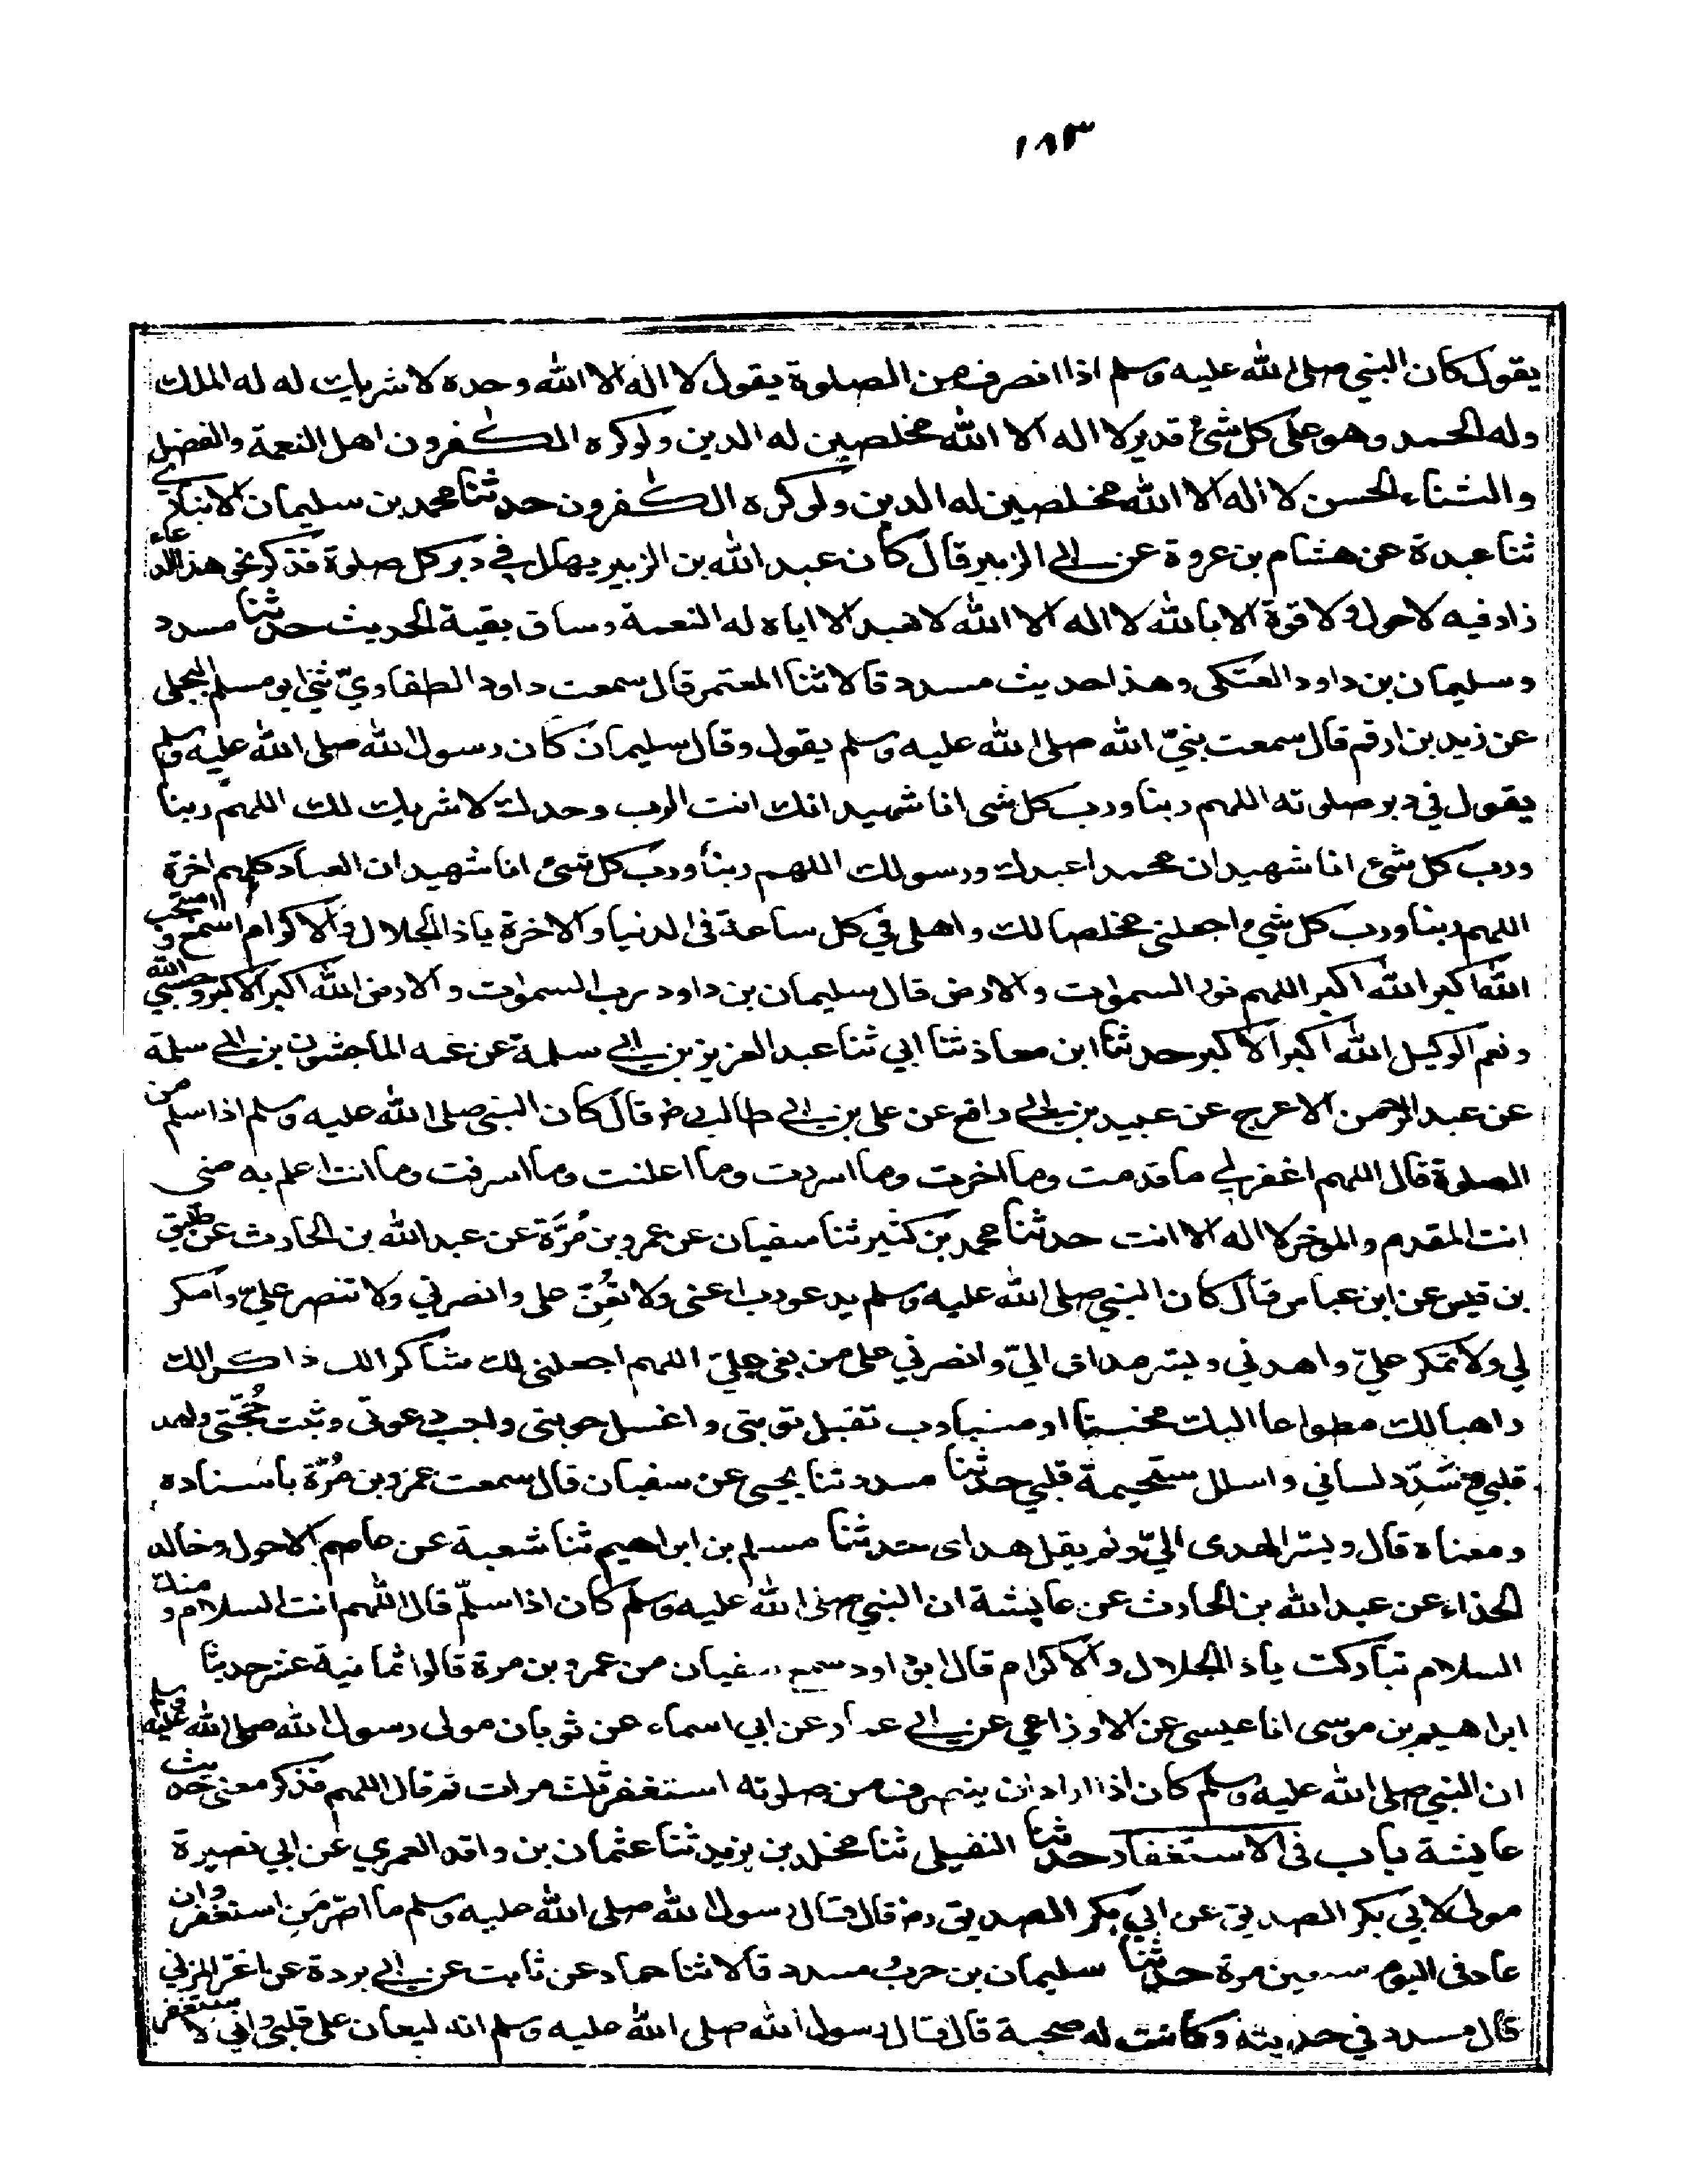 ١٨٣
يقول كان النبي صلى الله عليه وسلم اذا انصرف من الصلوة يقول لا اله الا الله وحده لا شريك له له الملك
وله الحمد وهو على كل شئ قدير لا اله الا الله مخلصين له الدين ولو كره الكفرون اهل النعمة والفضل
والثناء الحسن لا اله الا الله مخلصين له الدين ولو كره الكفرون حدثنا محمد بن سليمان الانباري
ثنا عبدة عن هشام بن عروة عن ابي الزبير قال كان عبد الله بن الزبير يهلل في دبر كل صلوة فذكر نحو هذا الدعاء
زاد فيه لا حول ولا قوة الا بالله لا اله الا الله لا نعبد الا اياه له النعمة وساق بقية الحديث حدثنا مسدد
وسليمان بن داود العتكى وهذا حديث مسدد قالا ثنا المعتمر قال سمعت داود الطفاويّ ثني ابو مسلم البجلى
عن زيد بن ارقم قال سمعت نبيّ الله صلى الله عليه وسلم يقول وقال سليمان كان رسول الله صلى الله عليه وسلم
يقول في دبر صلوته اللهم ربنا ورب كل شى انا شهيد انك انت الرب وحدك لا شريك لك اللهم ربنا
ورب كل شئ انا شهيد ان محمدا عبدك ورسولك اللهم ربنا ورب كل شئ انا شهيد ان العباد كلهم اخرة
اللهم ربنا ورب كل شيء اجعلنى مخلصا لك واهلى في كل ساعة فى الدنيا والاخرة ياذا الجلال والاكرام اسمع واستجب
الله اكبر الله اكبر اللهم نور السموات والارض قال سليمان بن داود رب السموات والارض الله اكبر الاكبر حسبي الله
ونعم الوكيل الله اكبر الاكبر حدثنا ابن معاذ ثنا ابي ثنا عبد العزيز بن ابي سلمة عن عمه الماجشون بن ابي سلمة
عن عبد الرحمن الاعرج عن عبيد بن ابي رافع عن على بن ابي طالب رض قال كان النبي صلى الله عليه وسلم اذا سلم من
الصلوة قال اللهم اغفر لي ما قدمت وما اخرت وما اسررت وما اعلنت وما اسرفت وما انت اعلم به منى
انت المقدم والمؤخر لا اله الا انت حدثنا محمد بن كثير ثنا سفيان عن عمرو بن مُرَّة عن عبد الله بن الحارث عن طليق
بن قيس عن ابن عباس قال كان النبي صلى الله عليه وسلم يدعو رب اعنى ولا تُعِن على وانصرني ولا تنصر عليّ وامكر
لي ولا تمكر عليّ واهدني ويسر هداى اليّ وانصرني على من بغى عليّ اللهم اجعلنى لك شاكرا لك ذاكرا لك
راهبا لك مطواعا اليك مخبتا او منيبا رب تقبل توبتى واغسل حوبتى واجب دعوتى وثبت حُجّتى واهد
قلبي وسَدِّد لساني واسلل سخيمة قلبي حدثنا مسدد ثنا يحيى عن سفيان قال سمعت عمرو بن مُرّة باسناده
ومعناه قال ويسّر الهدى اليّ ولم يقل هداى حدثنا مسلم بن ابراهيم ثنا شعبة عن عاصم الاحول وخالد
الحذاء عن عبد الله بن الحارث عن عايشة ان النبي صلى الله عليه وسلم كان اذا سلّم قال اللهم انت السلام ومنك
السلام تباركت ياذا الجلال والاكرام قال ابو داود سمع سفيان من عمرو بن مرة قالوا ثمانية عشر حديثا
ابراهيم بن موسى انا عيسى عن الاوزاعي عن ابي عمار عن ابي اسماء عن ثوبان مولى رسول الله صلى الله عليه وسلم
ان النبي صلى الله عليه وسلم كان اذا اراد ان ينصرف من صلوته استغفر ثلث مرات ثم قال اللهم فذكر معنى حديث
عايشة باب فى الاستغفار حدثنا النفيلى ثنا مخلد بن يزيد ثنا عثمان بن واقد العمري عن ابي نصيرة
مولى لابي بكر الصديق عن ابي بكر الصديق رض قال قال رسول الله صلى الله عليه وسلم ما اصرّ مَن استغفر وان
عاد فى اليوم سبعين مرة حدثنا سليمان بن حرب ومسدد قالا ثنا حماد عن ثابت عن ابي بردة عن اغرّ المزني
قال مسدد في حديثه وكانت له صحبة قال قال رسول الله صلى الله عليه وسلم انه ليغان على قلبي واني لاستغفر